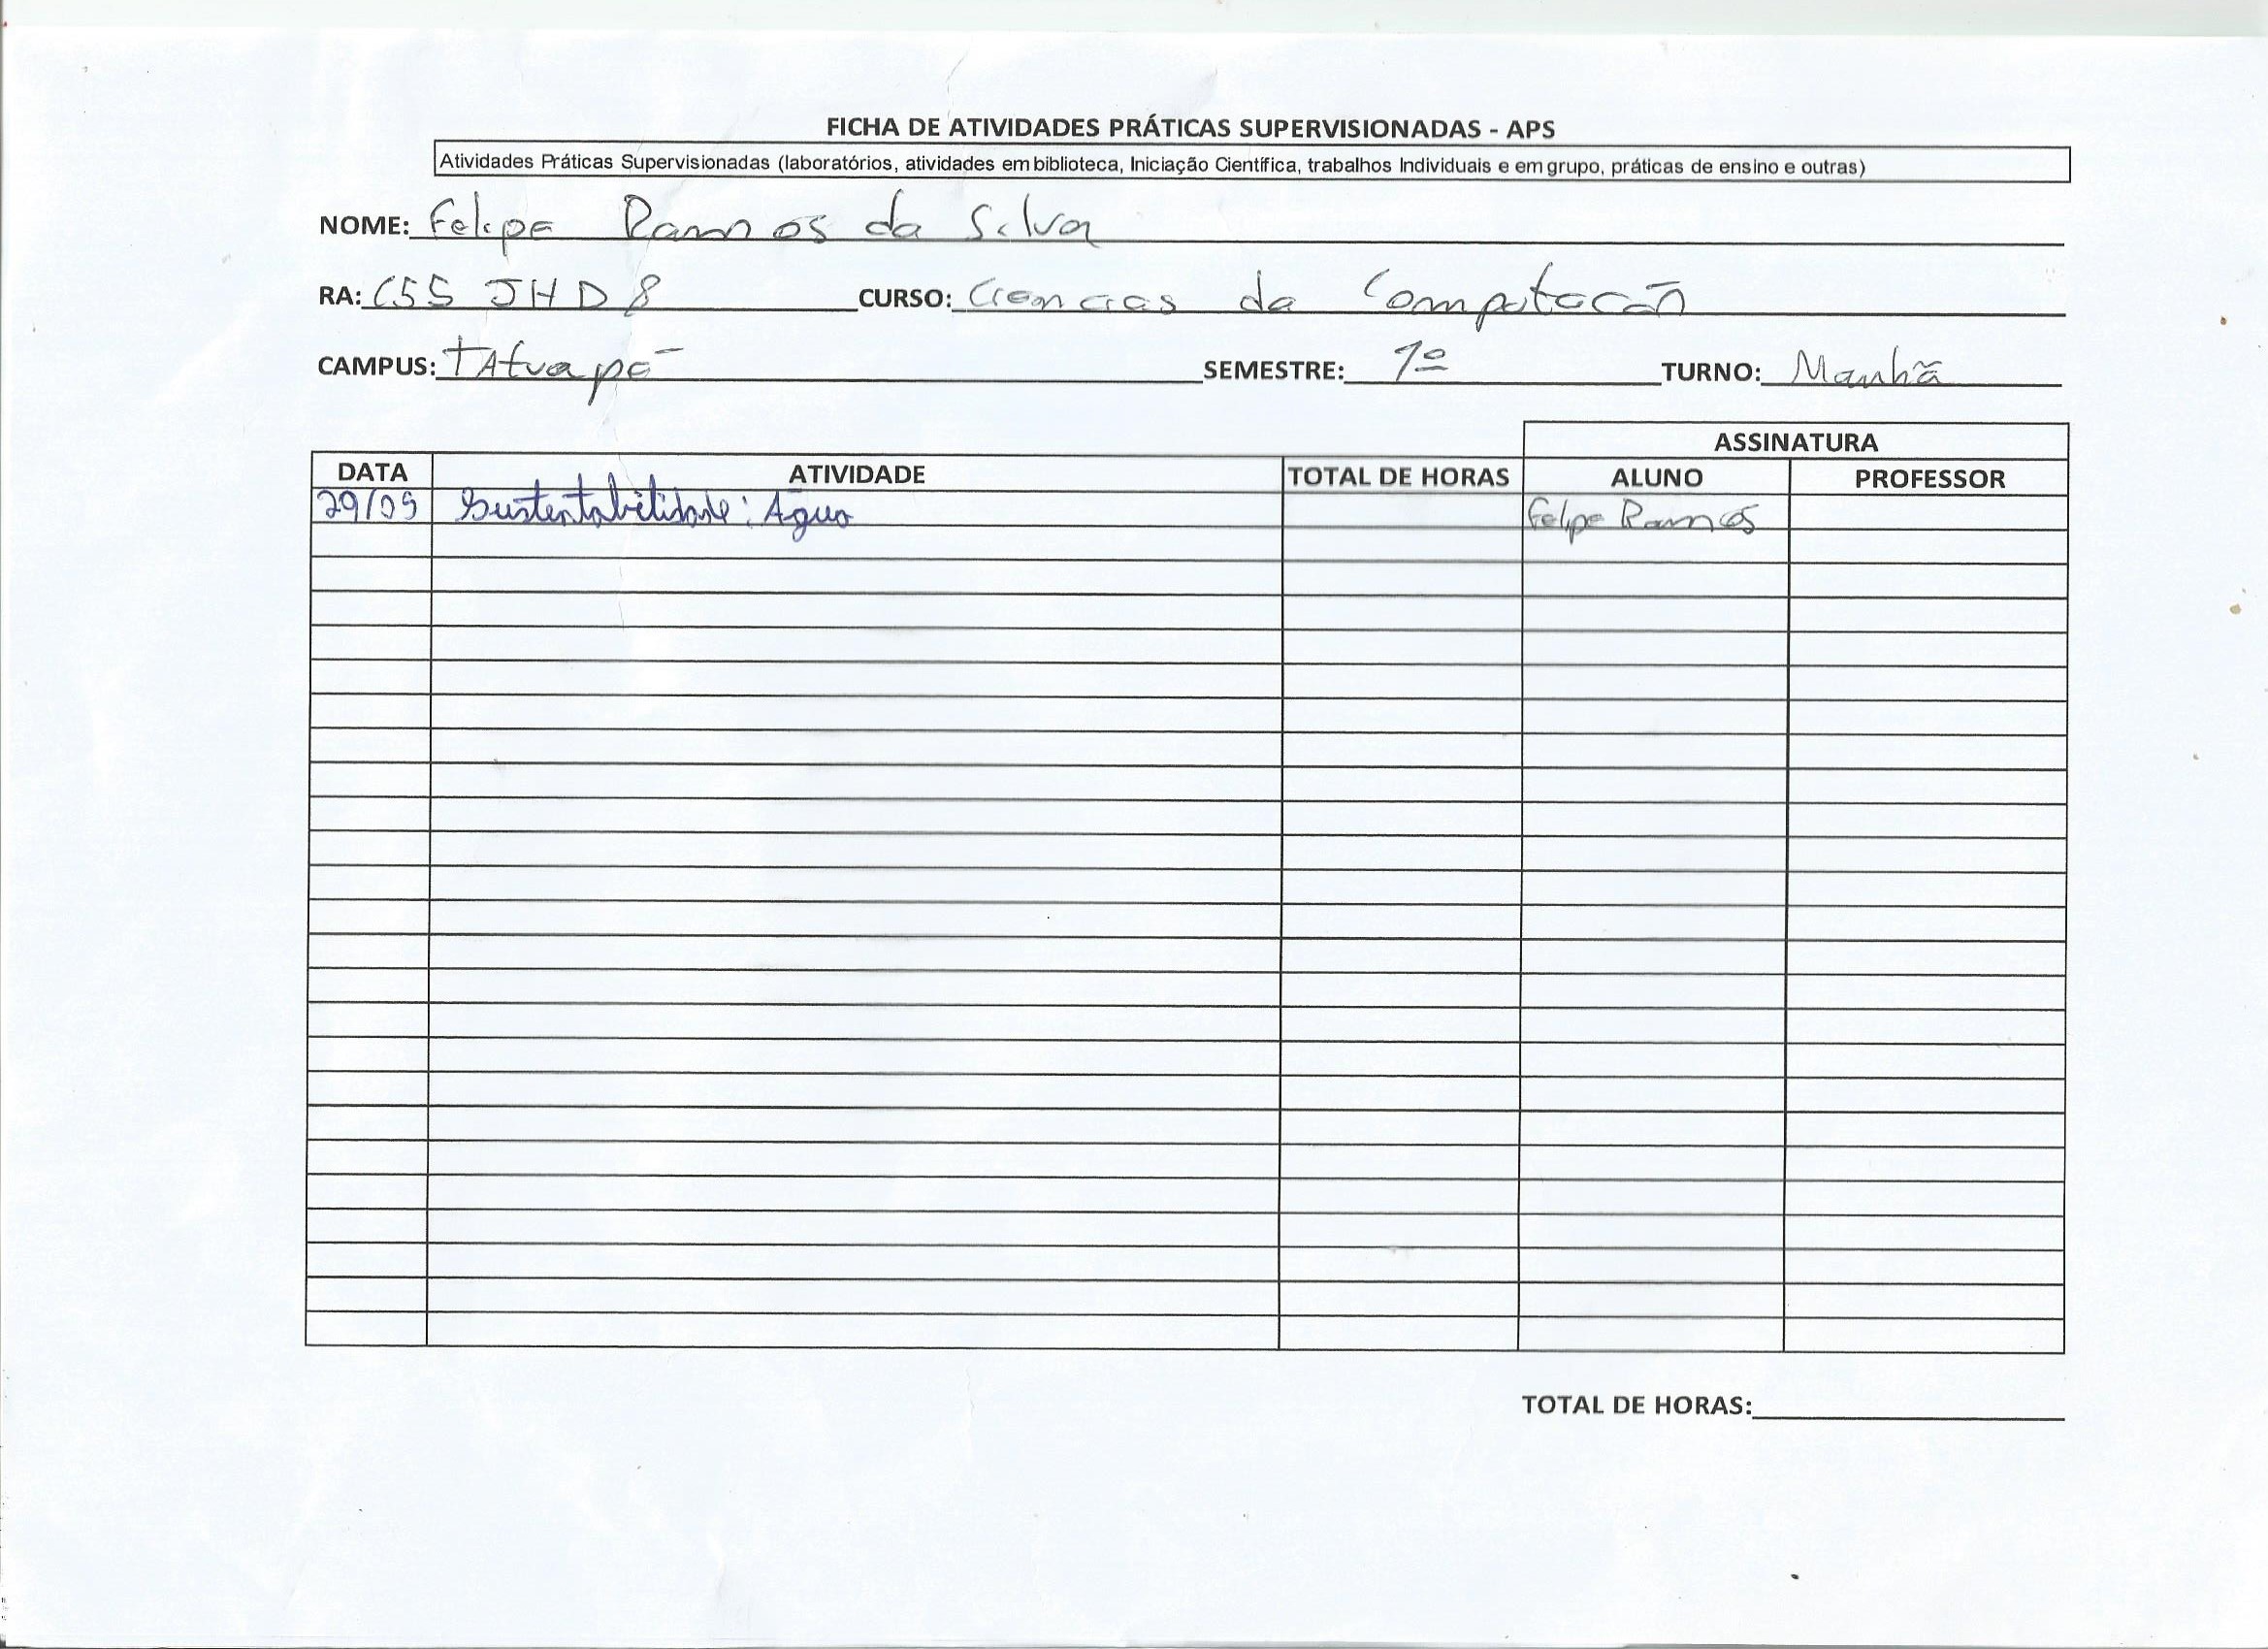 FICHA DE ATIVIDADES PRÁTICAS SUPERVISIONADAS - APS
Atividades Práticas Supervisionadas (laboratórios, atividades em biblioteca, Iniciação Científica, trabalhos Individuais e em grupo, práticas de ensino e outras)
NOME: Felipe Ramos da Silva
RA: C55JHD8 CURSO: Ciencias da Computacão
CAMPUS: TAtuapé SEMESTRE: 1º TURNO: Manhã
ASSINATURA
DATA ATIVIDADE TOTAL DE HORAS ALUNO PROFESSOR
29/05 Sustentabilidade: Água Felipe Ramos
TOTAL DE HORAS: